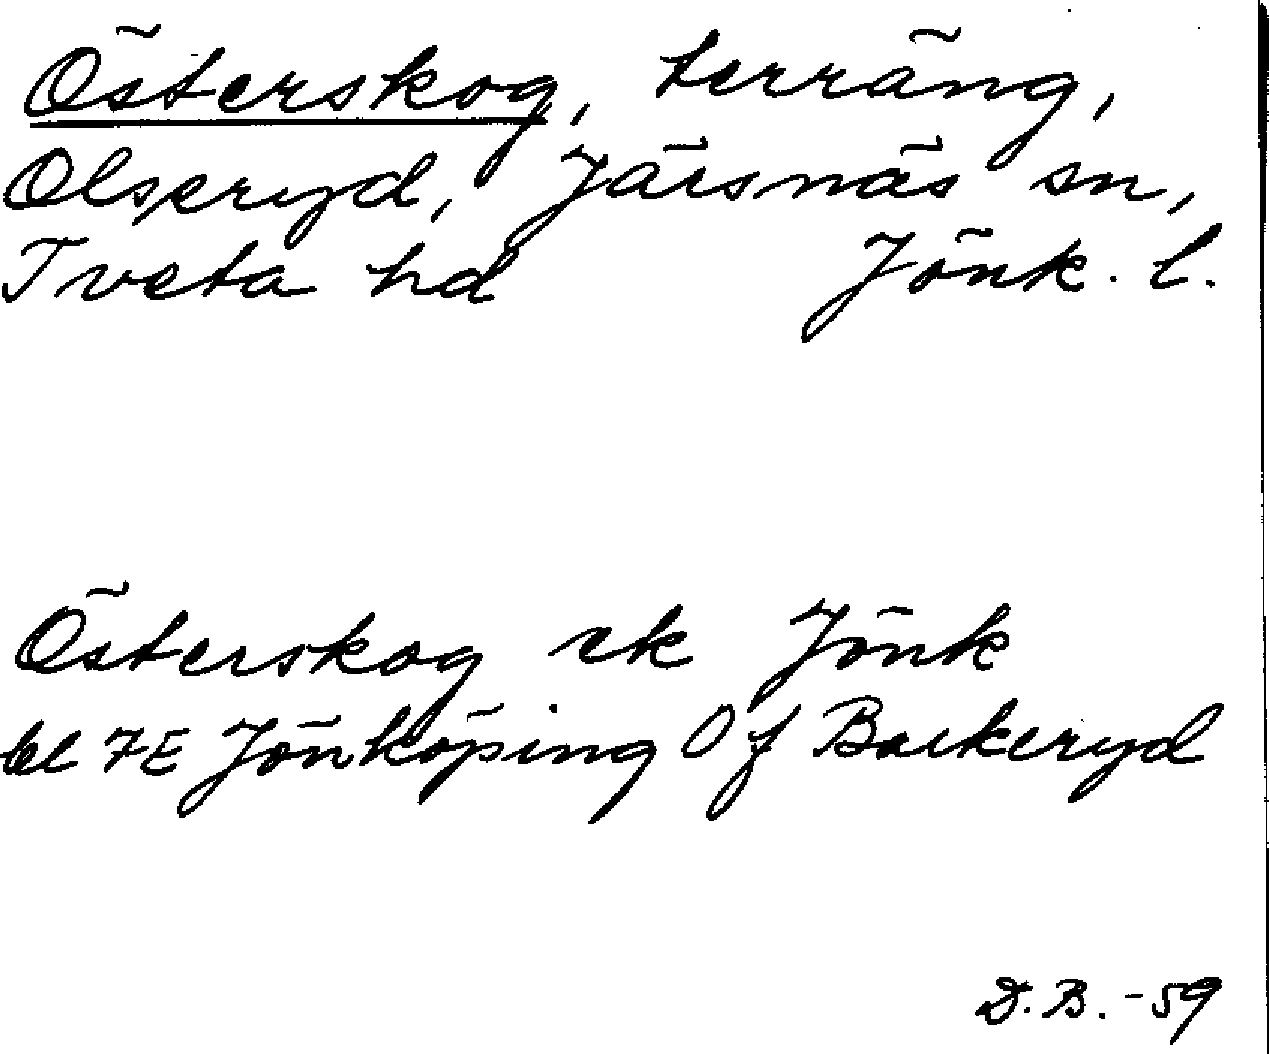 Österskog, terräng,
Olseryd, Järsnäs sn,
Tveta hd Jönk. l.
Österskog ek Jönk
bl 7E Jönköping Of Backeryd
D.B. -59